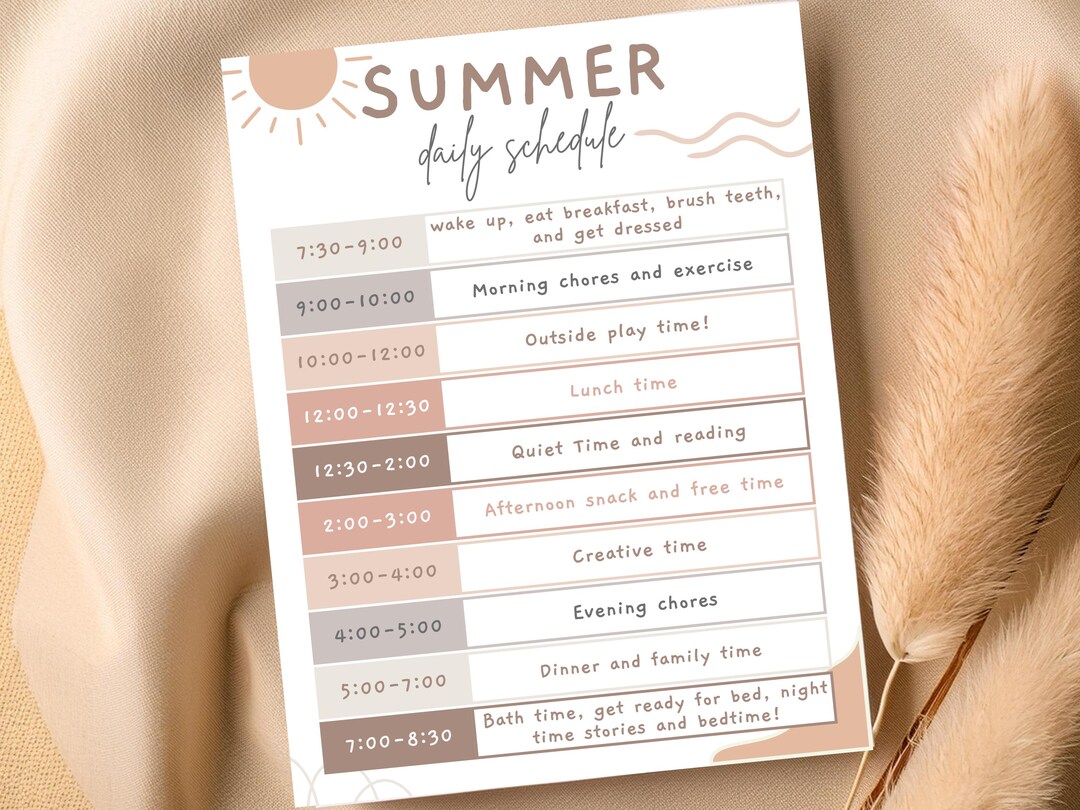 SUMMER
daily schedule
7:30-9:00
wake up, eat breakfast, brush teeth,
and get dressed
9:00-10:00
Morning chores and exercise
10:00-12:00
Outside play time!
12:00-12:30
Lunch time
12:30-2:00
Quiet Time and reading
2:00-3:00
Afternoon snack and free time
3:00-4:00
Creative time
4:00-5:00
Evening chores
5:00-7:00
Dinner and family time
7:00-8:30
Bath time, get ready for bed, night
time stories and bedtime!